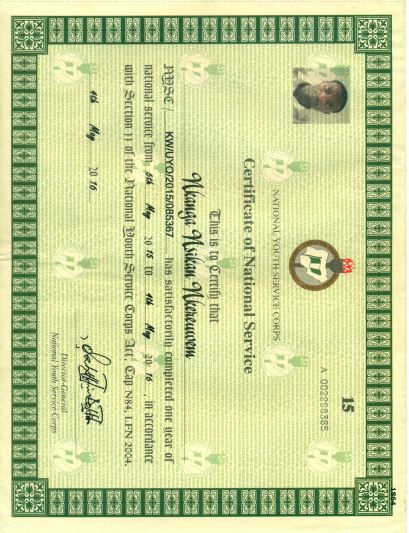 1864
15
A 002998385
NATIONAL YOUTH SERVICE CORPS
Certificate of National Service
This is to Certify that
Nkanga Nsikan Nkereuwem
NYSC/ KW/UYO/2015/085367 has satisfactorily completed one year of
national service from 5th May 2015 to 4th May 2016, in accordance
with Section 11 of the National Youth Service Corps Act, Cap N84, LFN 2004.
4th May 2016
Director-General
National Youth Service Corps